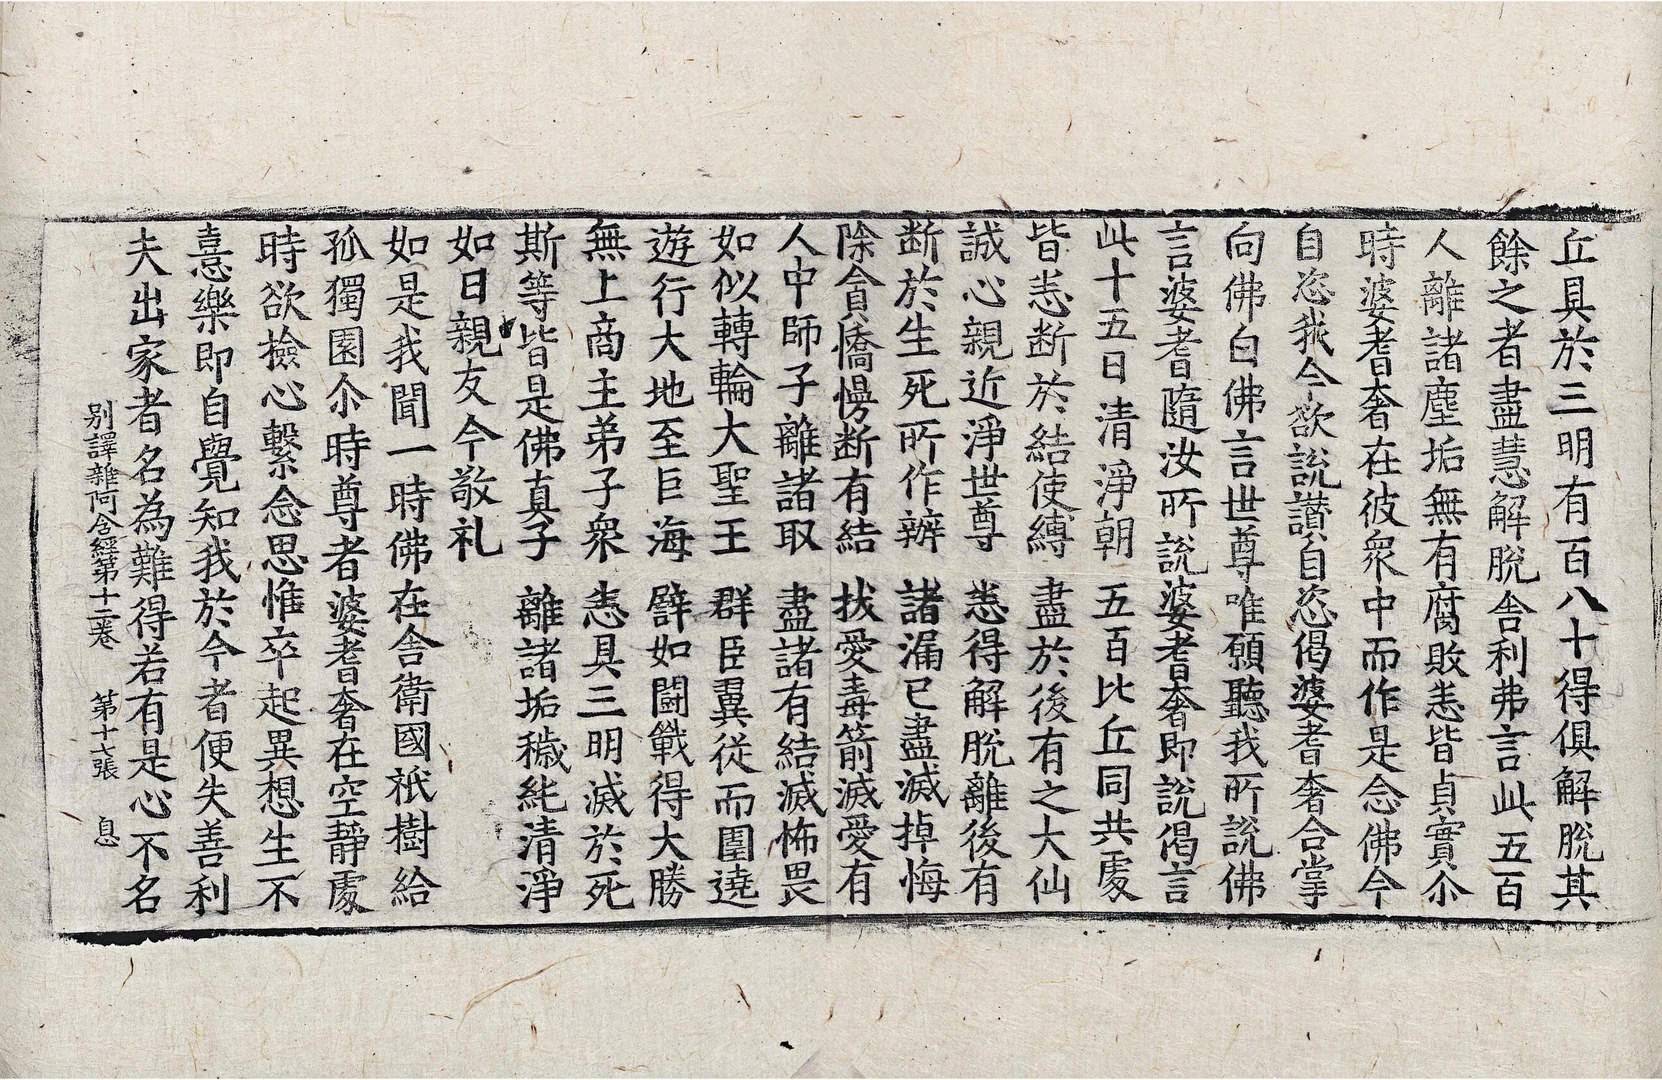 丘具於三明有百八十得俱解脫其
餘之者盡慧解脫舍利弗言此五百
人離諸塵垢無有腐敗悉皆貞實尒
時婆耆奢在彼衆中而作是念佛今
自恣我今欲說讃自恣偈婆耆奢合掌
向佛白佛言世尊唯願聽我所說佛
言婆耆隨汝所說婆耆奢即說偈言
此十五日清淨朝　五百比丘同共處
皆悉断於結使縛　盡於後有之大仙
誠心親近淨世尊　悉得解脫離後有
断於生死所作辦　諸漏已盡滅掉悔
除貪憍慢断有結　拔愛毒箭滅愛有
人中師子離諸取　盡諸有結滅怖畏
如似轉輪大聖王　群臣翼從而圍遶
遊行大地至巨海　譬如鬪戰得大勝
無上商主弟子衆　悉具三明滅於死
斯等皆是佛真子　離諸垢穢純清淨
如日親友今敬礼
如是我聞一時佛在舍衛國祇樹給
孤獨園尒時尊者婆耆奢在空静處
時欲撿心繫念思惟卒起異想生不
憙樂即自覺知我於今者便失善利
夫出家者名為難得若有是心不名
别譯雜阿含經第十二卷　第十七張　息